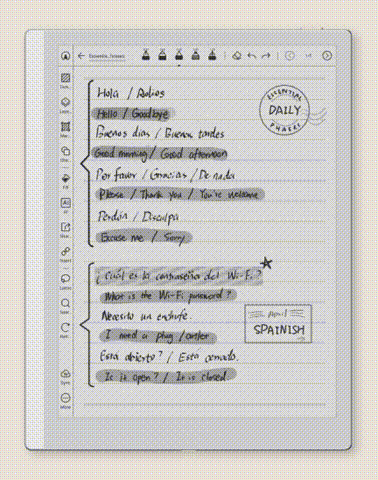 Hola / Adios
Hello / Goodbye
Buenos días / Buenas tardes
Good morning / Good afternoon
Por favor / Gracias / De nada
Please / Thank you / You're welcome
Perdón / Disculpa
Excuse me / Sorry
¿Cuál es la contraseña del Wi-Fi?
What is the Wi-Fi password?
Necesito un enchufe.
I need a plug /outlet
Está abierto? / Está cerrado.
Is it open? / It is closed
ESSENTIAL
DAILY
PHASES
SPAINISH
Sync
More